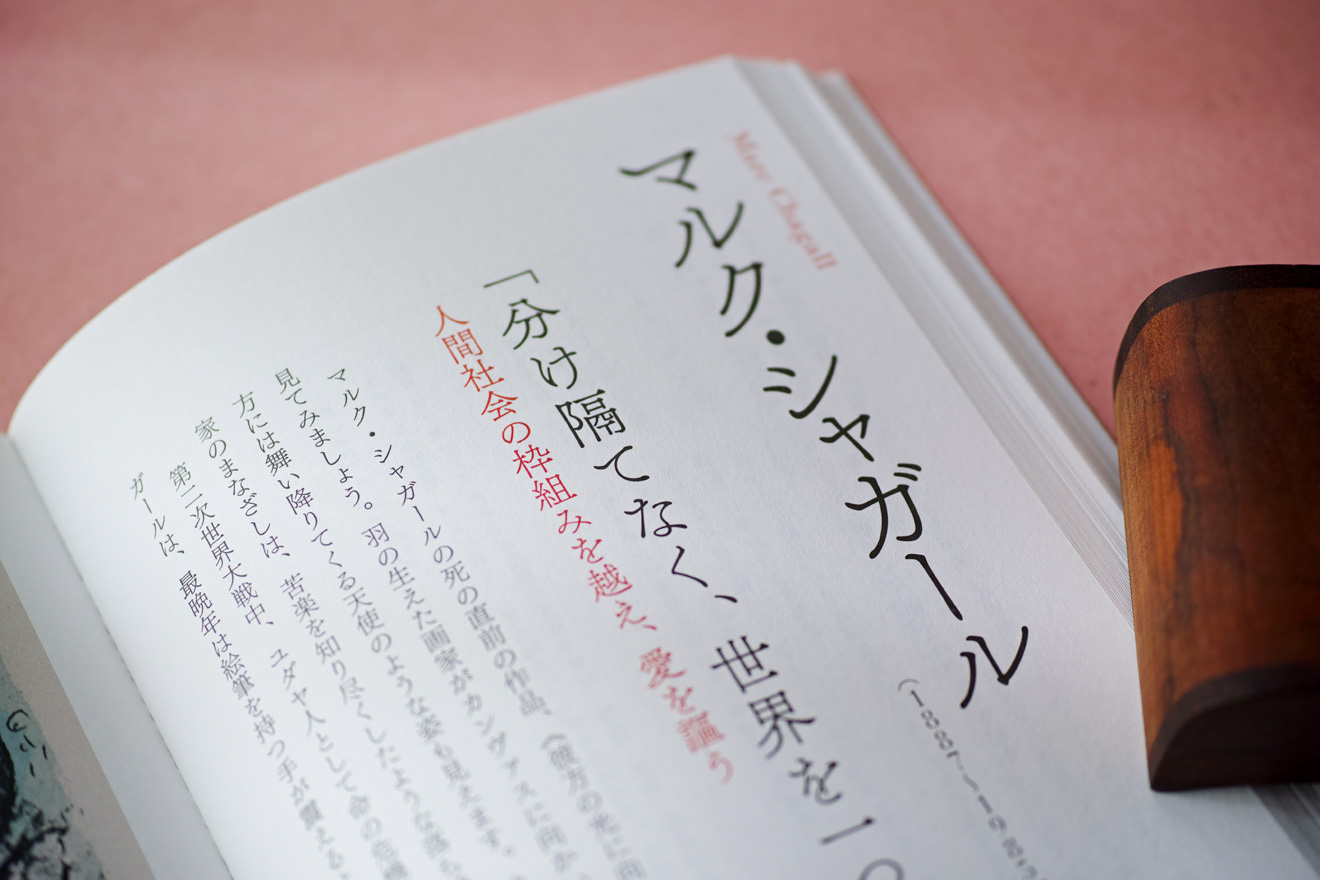 Marc Chagall
マルク・シャガール
(1887〜198
「分け隔てなく、世界を一
人間社会の枠組みを越え、愛を謳う
マルク・シャガールの死の直前の作品、《彼方の光に向
見てみましょう。羽の生えた画家がカンヴァスに向か
方には舞い降りてくる天使のような姿も見えます。
家のまなざしは、苦楽を知り尽くしたような落ち
第二次世界大戦中、ユダヤ人として命の危険
ガールは、最晩年は絵筆を持つ手が震える